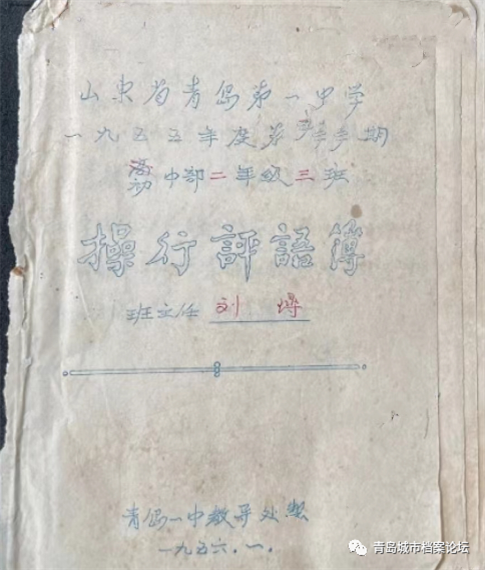 山东省青岛第一中学
一九五五年度第 学期
初中部二年级三班
操行評語簿
班主任 刘
青岛一中教导处製
一九五六.一.
青岛城市档案论坛